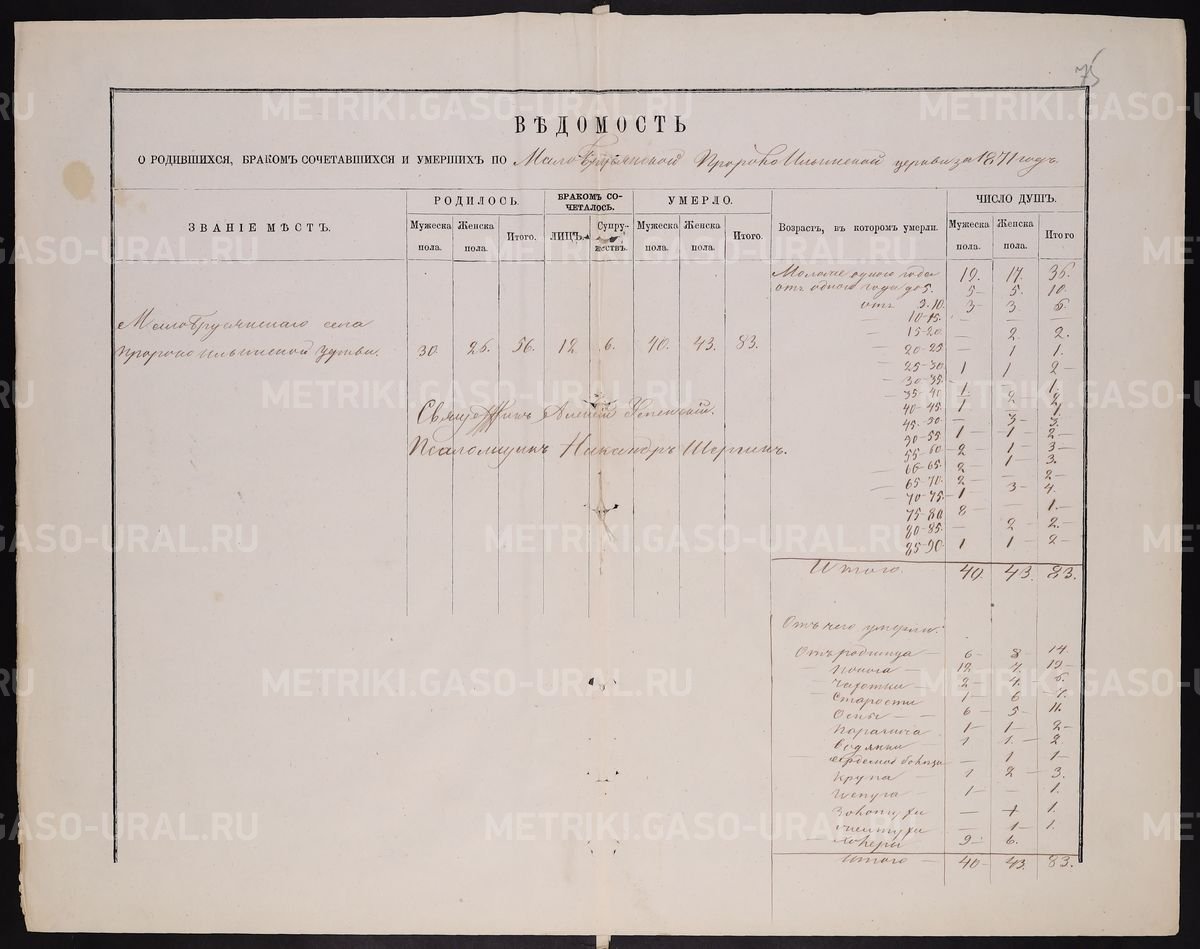 75
ВѢДОМОСТЬ
О РОДИВШИХСЯ, БРАКОМЪ СОЧЕТАВШИХСЯ И УМЕРШИХЪ ПО Мало Брусянской Пророко Ильинской церкви за 1871 годъ
ЗВАНІЕ МѢСТЪ. РОДИЛОСЬ. БРАКОМЪ СОЧЕТАЛОСЬ. УМЕРЛО. Возрастъ, въ которомъ умерли. ЧИСЛО ДУШЪ.
Мужеска пола. Женска пола. Итого. ЛИЦЪ. Супружествъ. Мужеска пола. Женска пола. Итого. Мужеска пола. Женска пола. Итого
Моложе одного года 19. 17. 36.
отъ одного года до 5. 5 — 5. 10.
отъ 5.10. 3 — 3 6.
10-15. — — —
15-20 — 2 2.
20-25 — 1 1.
25-30 1 1 2 —
30-35.
35-40
40-45.
45-50
50-55
55-60
60-65.
65-70.
70-75.
75-80.
80-85. — 2 — 2. —
85-90. 1 1 — 2 —
Итого. 40. 43. 83.
Мало Брусянскаго села
Пророко Ильинской Церкви. 30. 26. 56. 12 6. 40. 43. 83.
Священникъ Алексій Успенскій.
Псаломщикъ Никандръ
Отъ чего умерли:
Отъ родимца — 6 — 8 — 14.
Поноса — 12 — 7. — 19 —
Чахотки — 2 — 4. — 6.
Старости 1 — 6 — 7.
Оспы — — 6 — 5 — 11.
Паралича 1 — 1 — 2 —
Водянки — 1 1. — 2.
— 1 1 —
Крупа — 1 2 — 3.
Испуга — 1 — — 1.
— 1.
— 1 — 1.
Холеры 9 — 6.
Итого — 40 — 43. 83.
METRIKI.GASO-URAL.RU